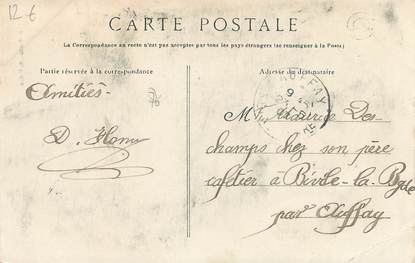 12 €
CARTE POSTALE
La Correspondance au recto n'est pas acceptée par tous les pays étrangers (se renseigner à la Poste)
Partie réservée à la correspondance
Adresse du destinataire
AUFFAY
9
Amitiés
Maurice Des-
D.
champs chez son père
cafetier à Biville-la-
par Auffay